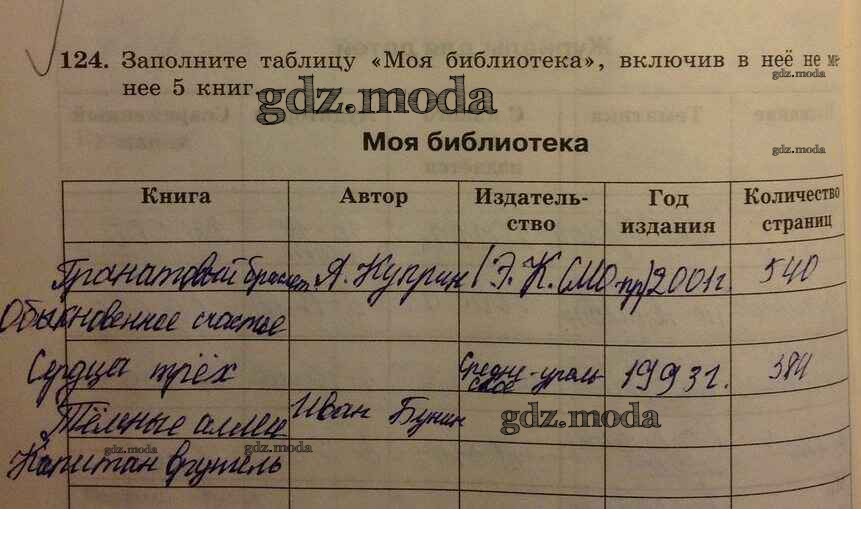 124. Заполните таблицу «Моя библиотека», включив в неё не ме-
нее 5 книг.
gdz.moda
gdz.moda
Моя библиотека
gdz.moda
Книга Автор Издательство Год издания Количество страниц
Гранатовый браслет. А. Куприн (Э.К.СМО-пр) 2001г. 540
Обыкновенное счастье
Сердца трёх Средне-уральское 1993г. 384
Тёмные аллеи Иван Бунин
gdz.moda
Капитан врунгель
gdz.moda
gdz.moda